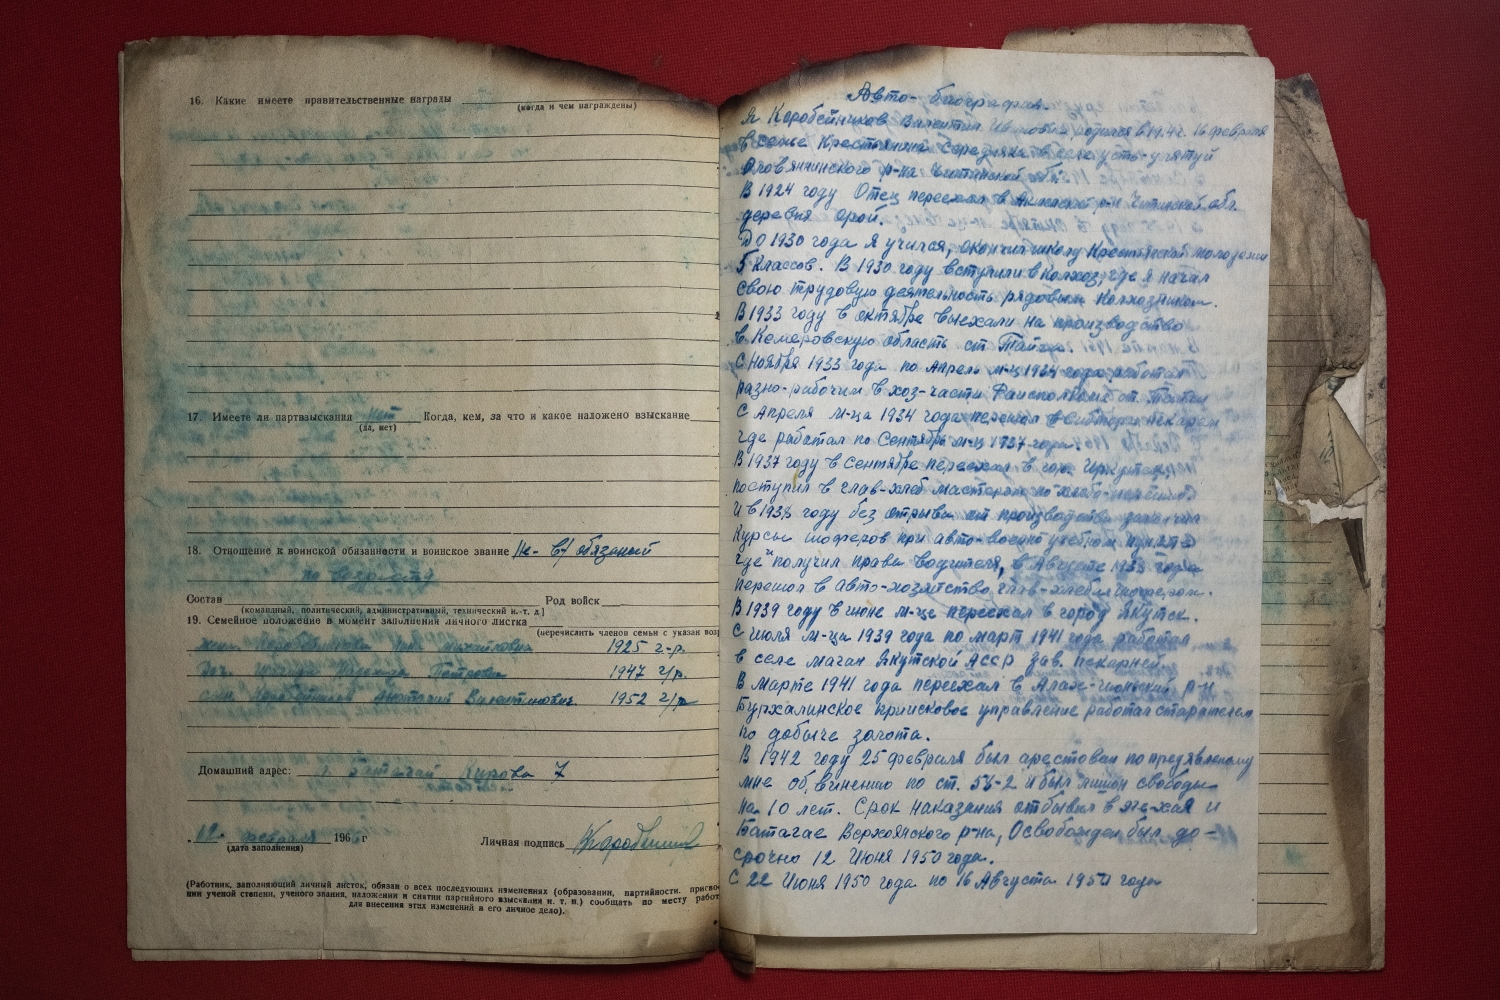 16. Какие имеете правительственные награды
(когда и чем награждены)
17. Имеете ли партвзыскания нет Когда, кем, за что и какое наложено взыскание
(да, нет)
18. Отношение к воинской обязанности и воинское звание Не- в/обязаный
по возрасту
Состав Род войск
(командный, политический, административный, технический и. т. д.)
19. Семейное положение в момент заполнения личного листка
(перечислить членов семьи с указан воз
жена Михайловна 1925 г-р.
Петровна 1947 г/р.
сын Анатолий Валентинович 1952 г/р
Домашний адрес: Батагай Кирова 7
12 февраля 196 г
(дата заполнения)
Личная подпись
(Работник, заполняющий личный листок, обязан о всех последующих изменениях (образовании, партийности, присво
нии ученой степени, ученого звания, наложении и снятии партийного взыскания и. т. п.) сообщать по месту работ
для внесения этих изменений в его личное дело).
Авто- биография.
Я Коробейников Валентин родился в 16 февраля
в семье Крестьянина Середняка в селе усть-
Оловянинского р-на Читинской обл.
В 1924 году Отец переехал в р-н Читинской обл.
деревня
До 1930 года Я учился, окончил школу Крестьянской молодежи
5 классов. В 1930 году вступили в Колхоз, где я начал
свою трудовую деятельность рядовым Колхозником.
В 1933 году в октябре выехали на производство
в Кемеровскую область ст. Тайга.
С Ноября 1933 года по Апрель м-ц 1934 года работал
разно-рабочим в хоз-части ст. Тайги
С Апреля м-ца 1934 года перешол в
где работал по Сентябрь м-ц 1937 года.
В 1937 году в Сентябре переехал в гор. Иркутск,
поступил в глав-хлеб мастером по
И в 1938 году без отрыва от производства закончил
Курсы шоферов при авто-военно учебном пункте
где получил права водителя, в Августе 1938 года
перешол в авто-хозяйство глав-хлеба шофером.
В 1939 году в июне м-це переехал в город Якутск.
С июля м-ца 1939 года по март 1941 года работал
в селе Маган Якутской АССР зав. пекарней.
В Марте 1941 года переехал в Алах-июнский р-н
Бурхалинское приисковое управление работал старателем
по добыче золота.
В 1942 году 25 февраля был арестован по предявленому
мне об,винению по ст. 58-2 и был лишон свободы
на 10 лет. Срок наказания отбывал в эге-хая и
Батагае Верхоянского р-на, Освобожден был до-
срочно 12 Июня 1950 года.
С 22 Июня 1950 года по 16 Августа года